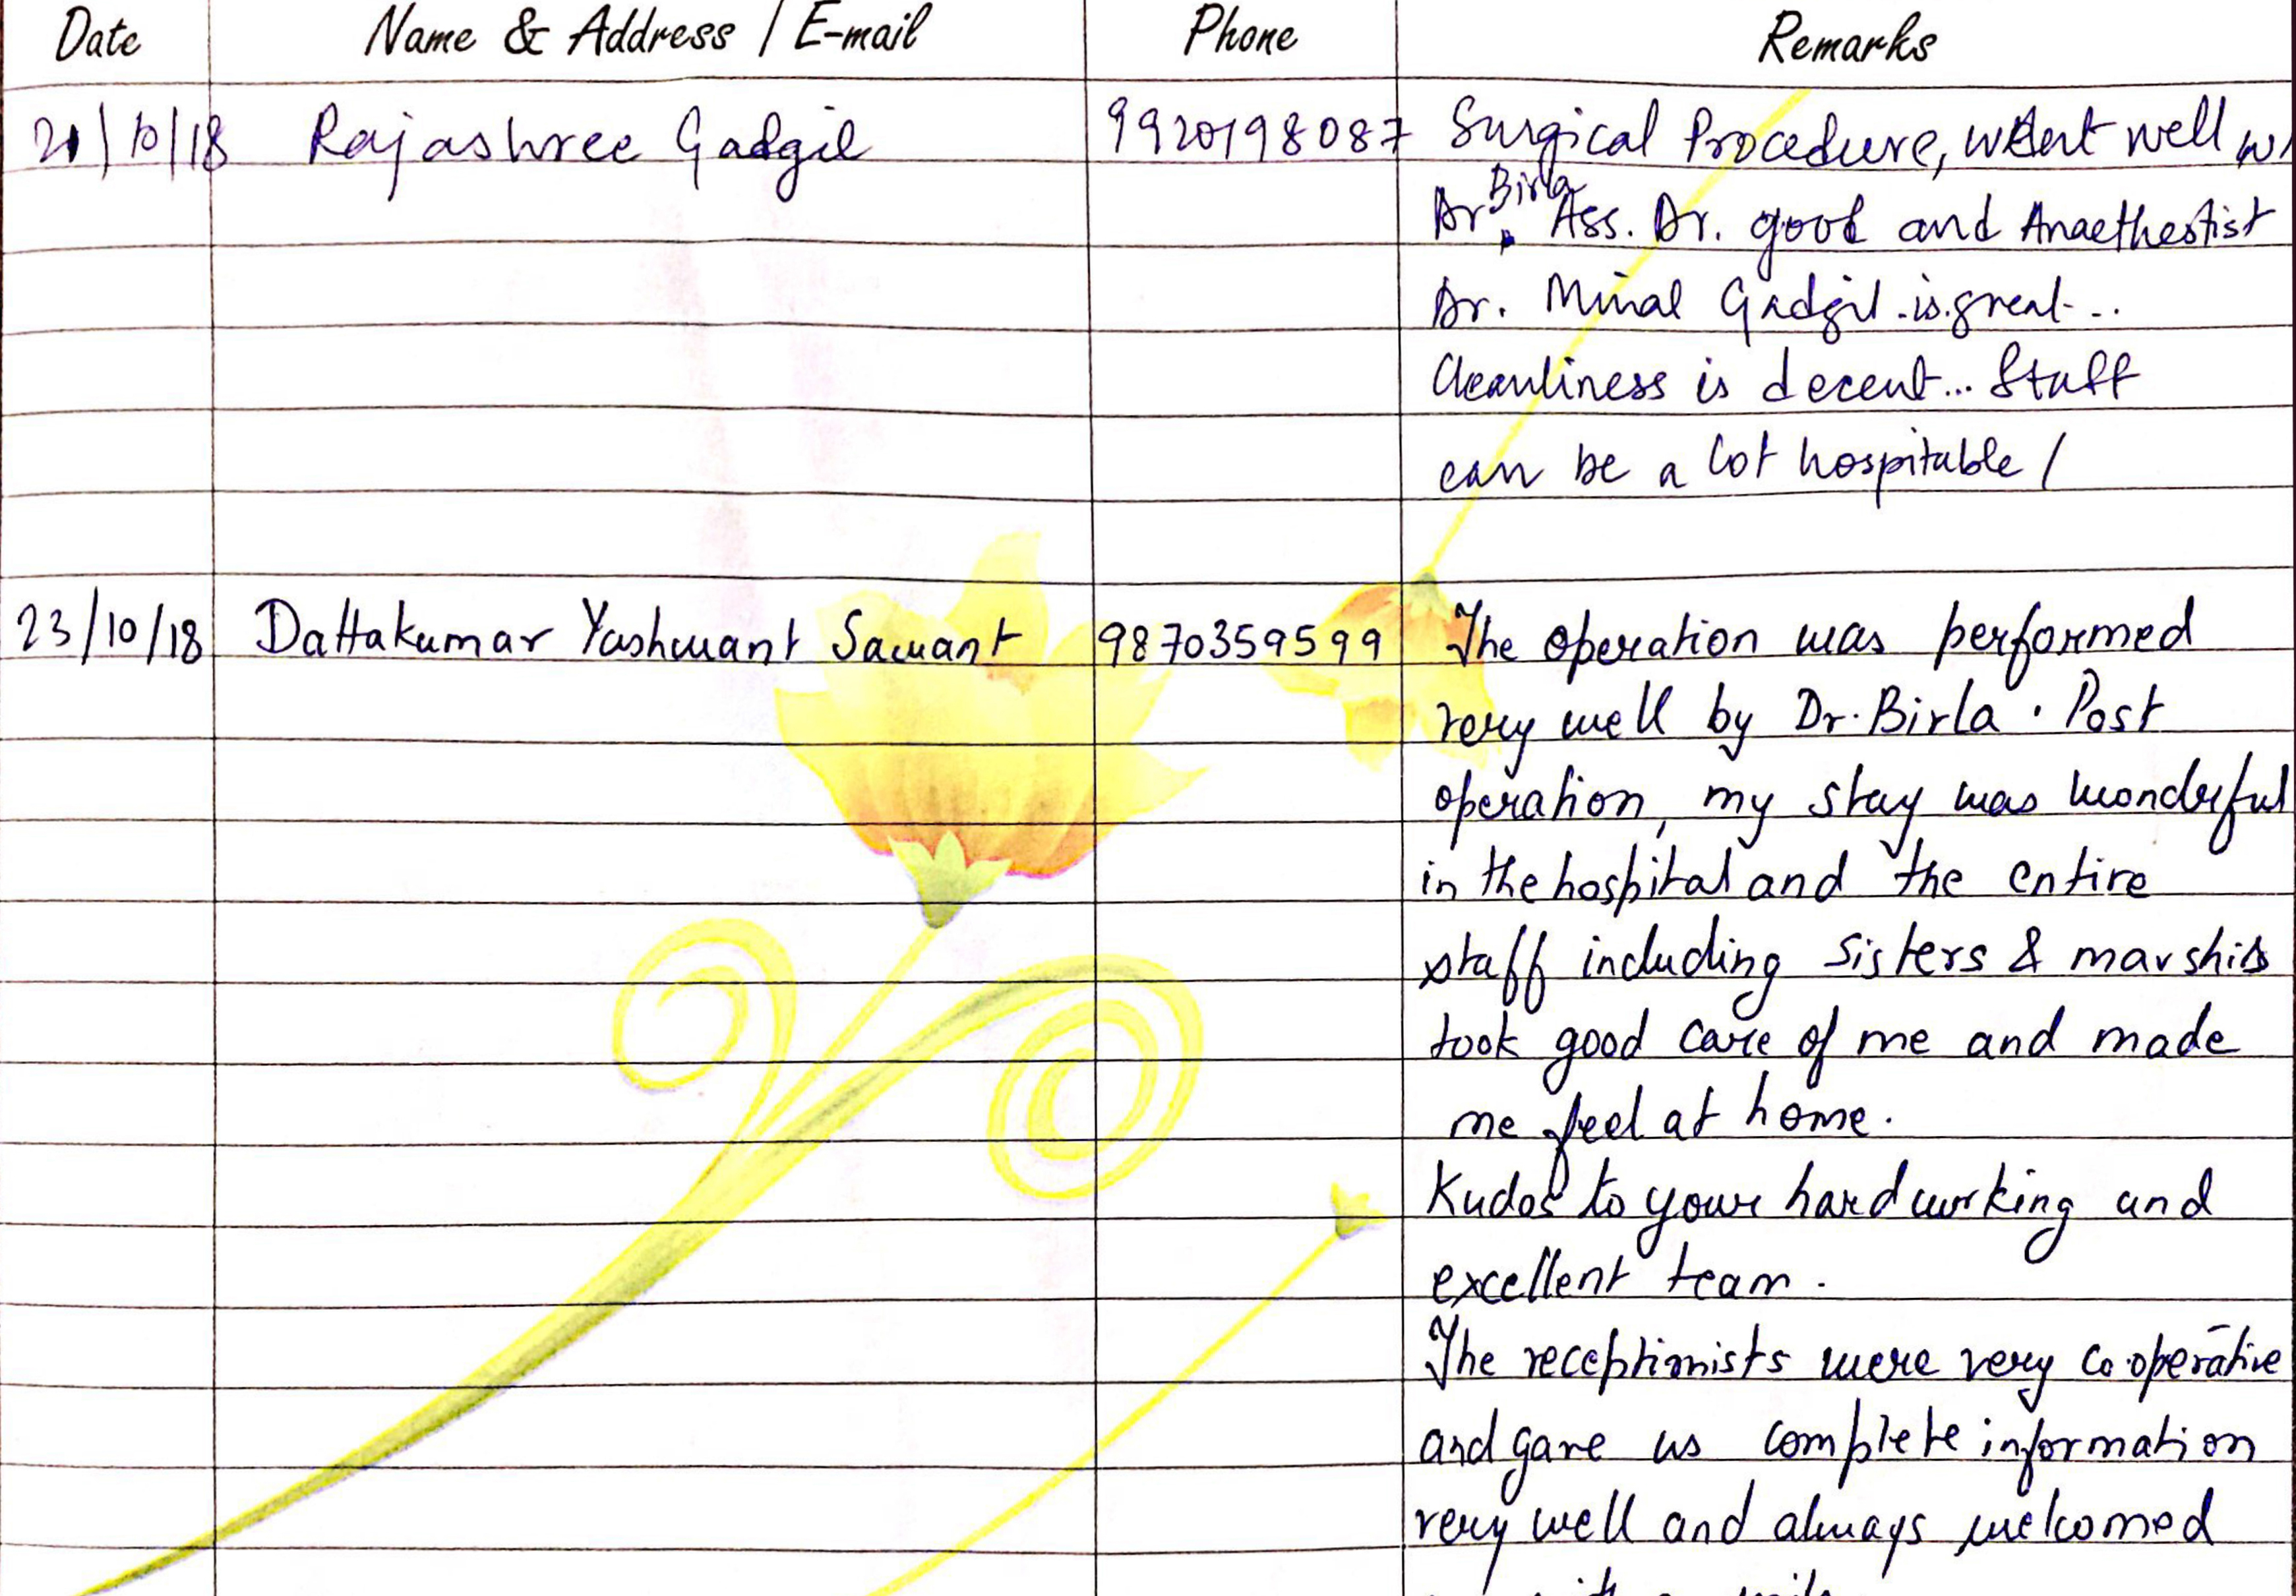 Date Name & Address / E-mail Phone Remarks
21/10/18 Rajashree Gadgil 9920198087 Surgical Procedure, went well
Dr. Birla Ass. Dr. good and Anaethestist
Dr. Minal Gadgil is great...
Cleanliness is decent... Staff
can be a lot hospitable /
23/10/18 Dattakumar Yashwant Sawant 9870359599 The operation was performed
very well by Dr. Birla. Post
operation, my stay was wonderful
in the hospital and the entire
staff including sisters &
took good care of me and made
me feel at home.
Kudos to your hardworking and
excellent team.
The receptionists were very co-operative
and gave us complete information
very well and always welcomed